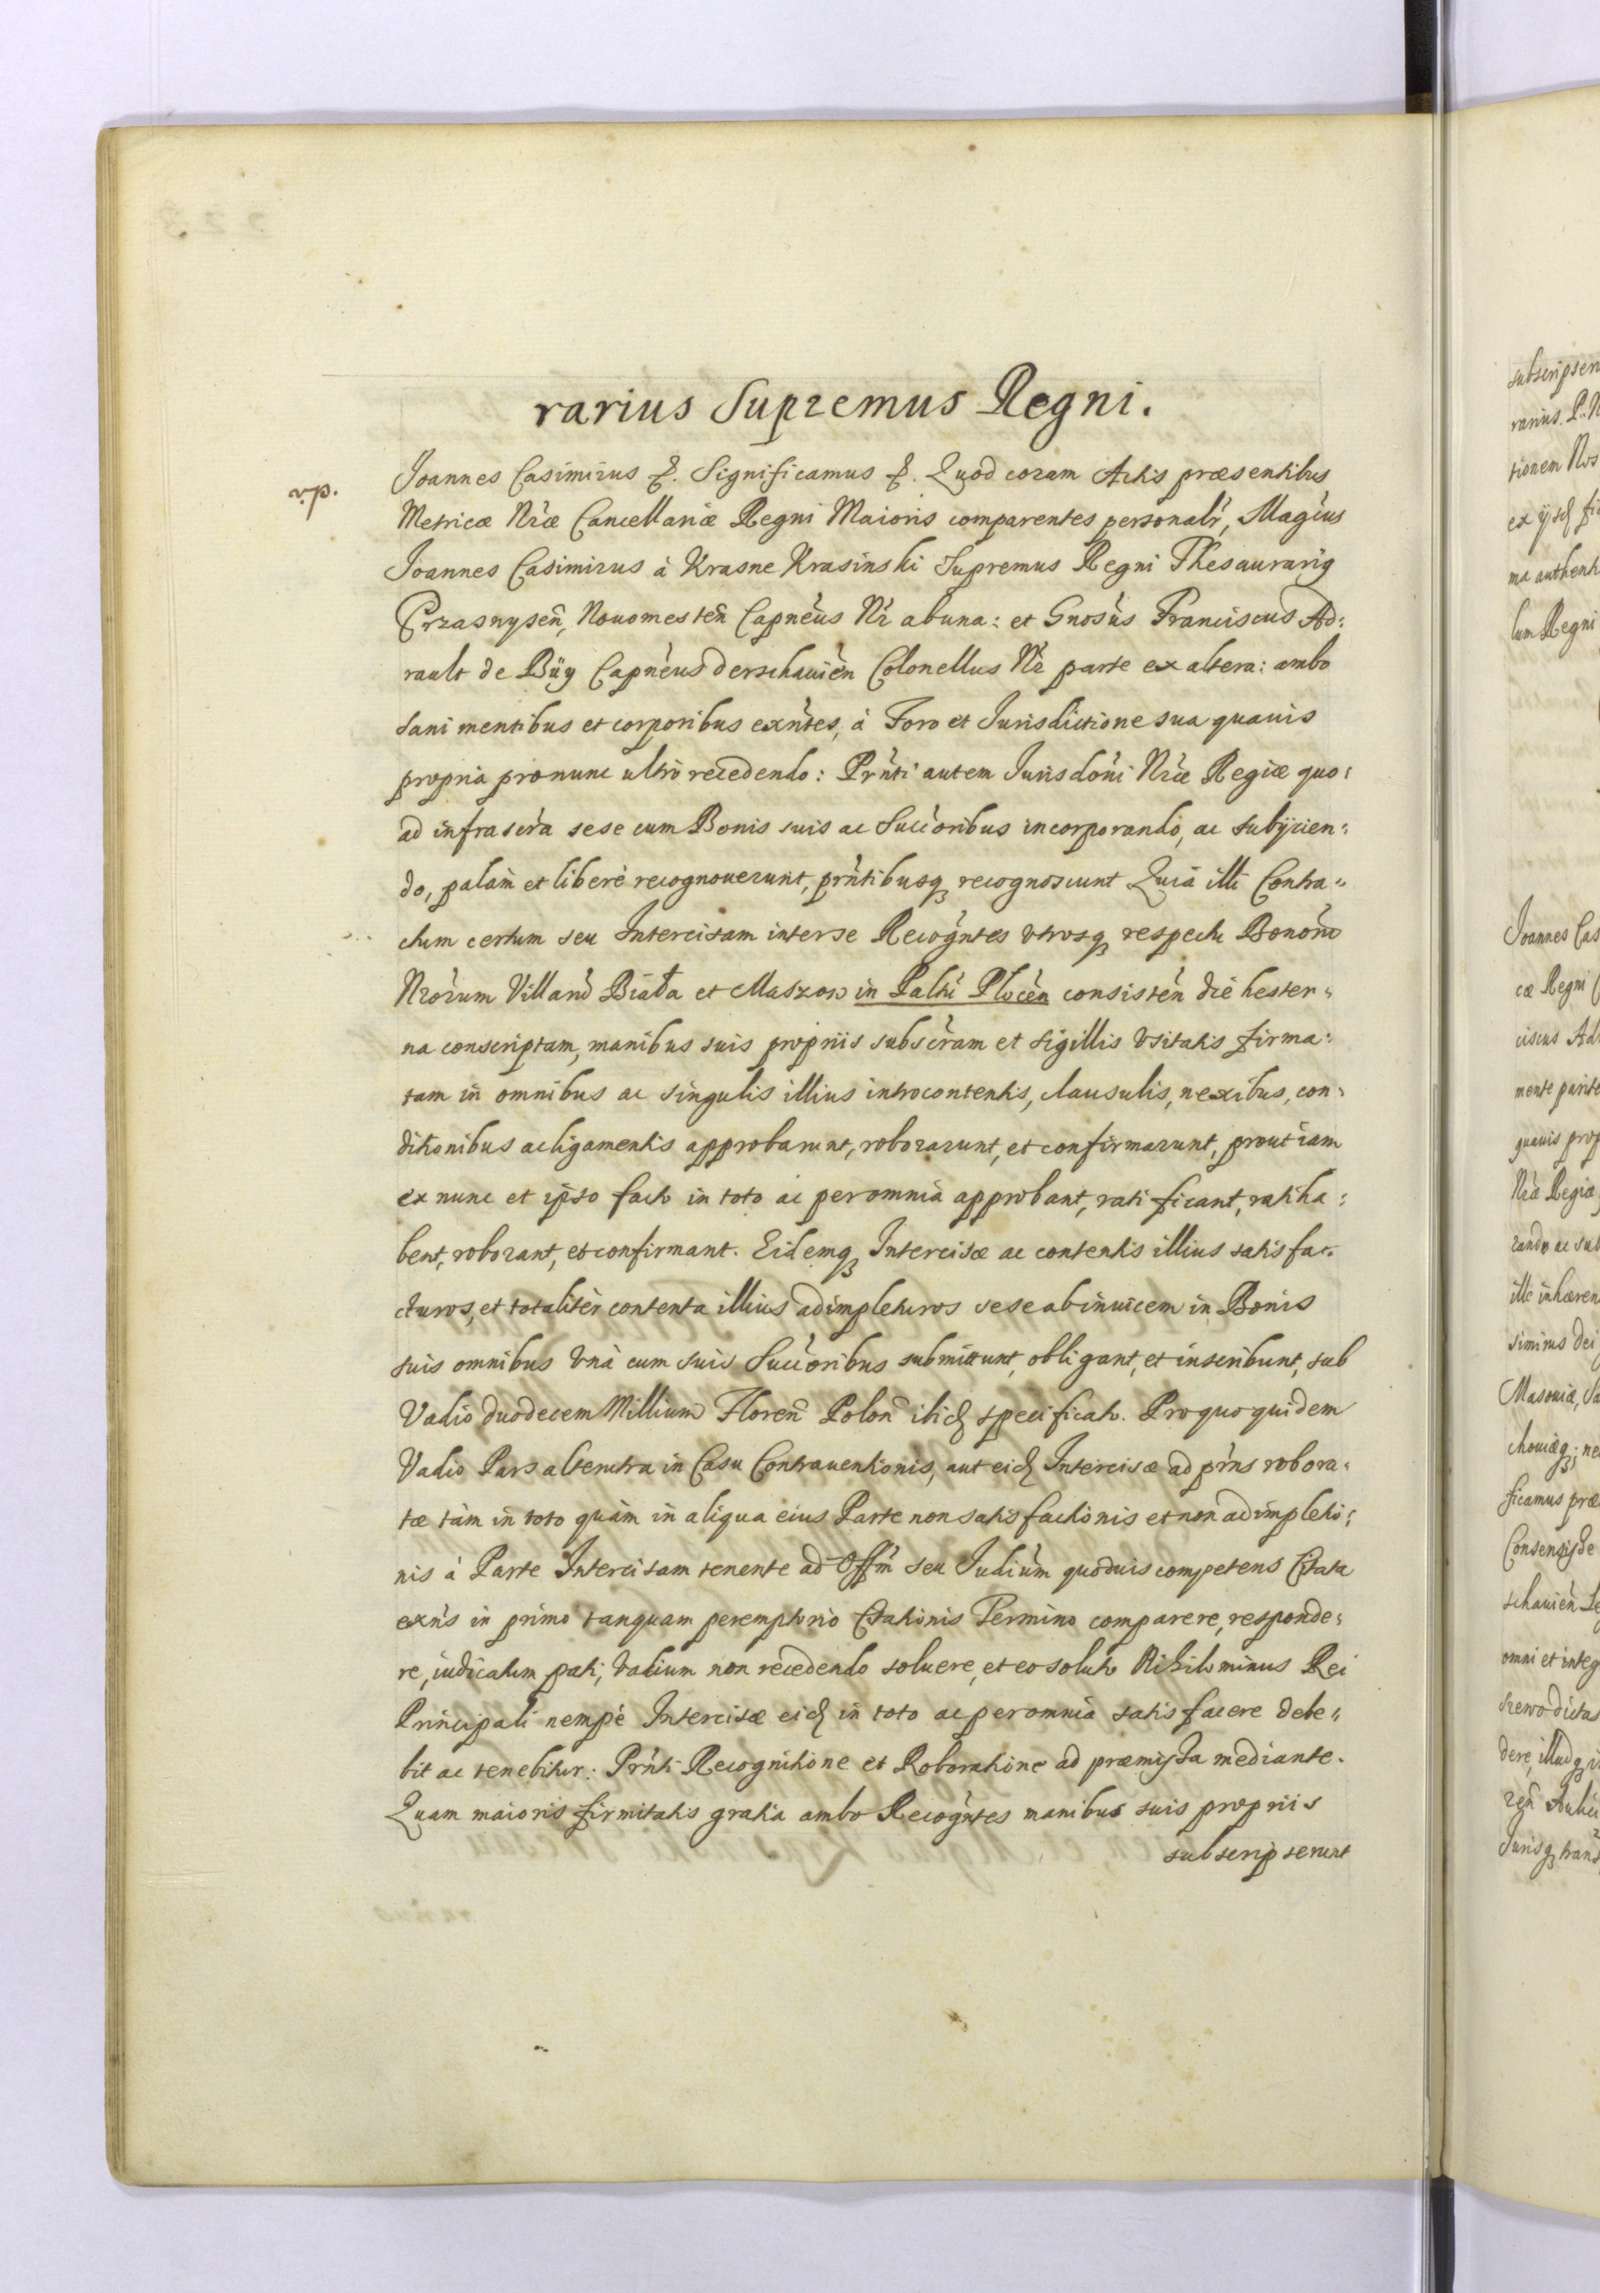 rarius Supremus Regni.
v.p.
Joannes Casimirus &. Significamus &. Quod coram Actis præsentibus
Metricæ Nr̃æ Cancellariæ Regni Maioris comparentes personalr̃, Magcus
Joannes Casimirus à Krasne Krasinski Supremus Regni Thesaurarig
Przasnysen̄, Nouomesten̄ Capneus Nr̃ abuna: et Gnosus Franciscus Ad:
rault de Büy Capneus derschauien̄ Colonellus Nr̃ parte ex altera: ambo
sani mentibus et corporibus exntes, à Foro et Jurisdictione sua quauis
propria pronunc ultrò recedendo: Prnti autem Jurisdoni Nr̃æ Regiæ quo:
ad infrascra sese cum Bonis suis ac Succoribus incorporando, ac subijcien:
do, palam et liberè recognouerunt, prntibusq; recognoscunt Quia illi Contra-
ctum certum seu Intercisam interse Recogntes utrosq; respectu Bonom̃
Nrorum Villarũ Biała et Maszow in Paltũ Plocen̄ consisten̄ die hester-
na conscriptam, manibus suis propriis subscram et sigillis usitatis firma:
tam in omnibus ac singulis illius introcontentis, clausulis, nexibus, con-
ditionibus ac ligamentis approbarunt, roborarunt, et confirmarunt, prout iam
ex nunc et ipso facto in toto ac per omnia approbant, ratificant, ratiha:
bent, roborant, et confirmant. Eidemq; Intercisæ ac contentis illius satisfac-
cturos, et totalitèr contenta illius adimpleturos sese abinuicem in Bonis
suis omnibus unà cum suis Succoribus submittunt, obligant, et inscribunt, sub
Vadio duodecem Millium Floren̄ Polon̄ ibid specificato. Pro quo quidem
Vadio Pars alterutra in Casu Contrauentionis, aut eid Intercisæ ad prns robora-
tæ tàm in toto quàm in aliqua eius Parte non satisfactionis et non adimpletio:
nis à Parte Intercisam tenente ad Offm seu Judium quoduis competens Citata
exns in primo tanquam peremptorio Citationis Termino comparere, responde:
re, iudicatum pati, Vadium non recedendo soluere, et eo soluto Nihilominus Rei
Principali nempè Intercisæ eid in toto ac per omnia satisfacere debe-
bit ac tenebitur: Prnti Recognitione et Roboratione ad præmissa mediante.
Quam maioris firmitatis gratia ambo Recogntes manibus suis propriis
subscripserunt